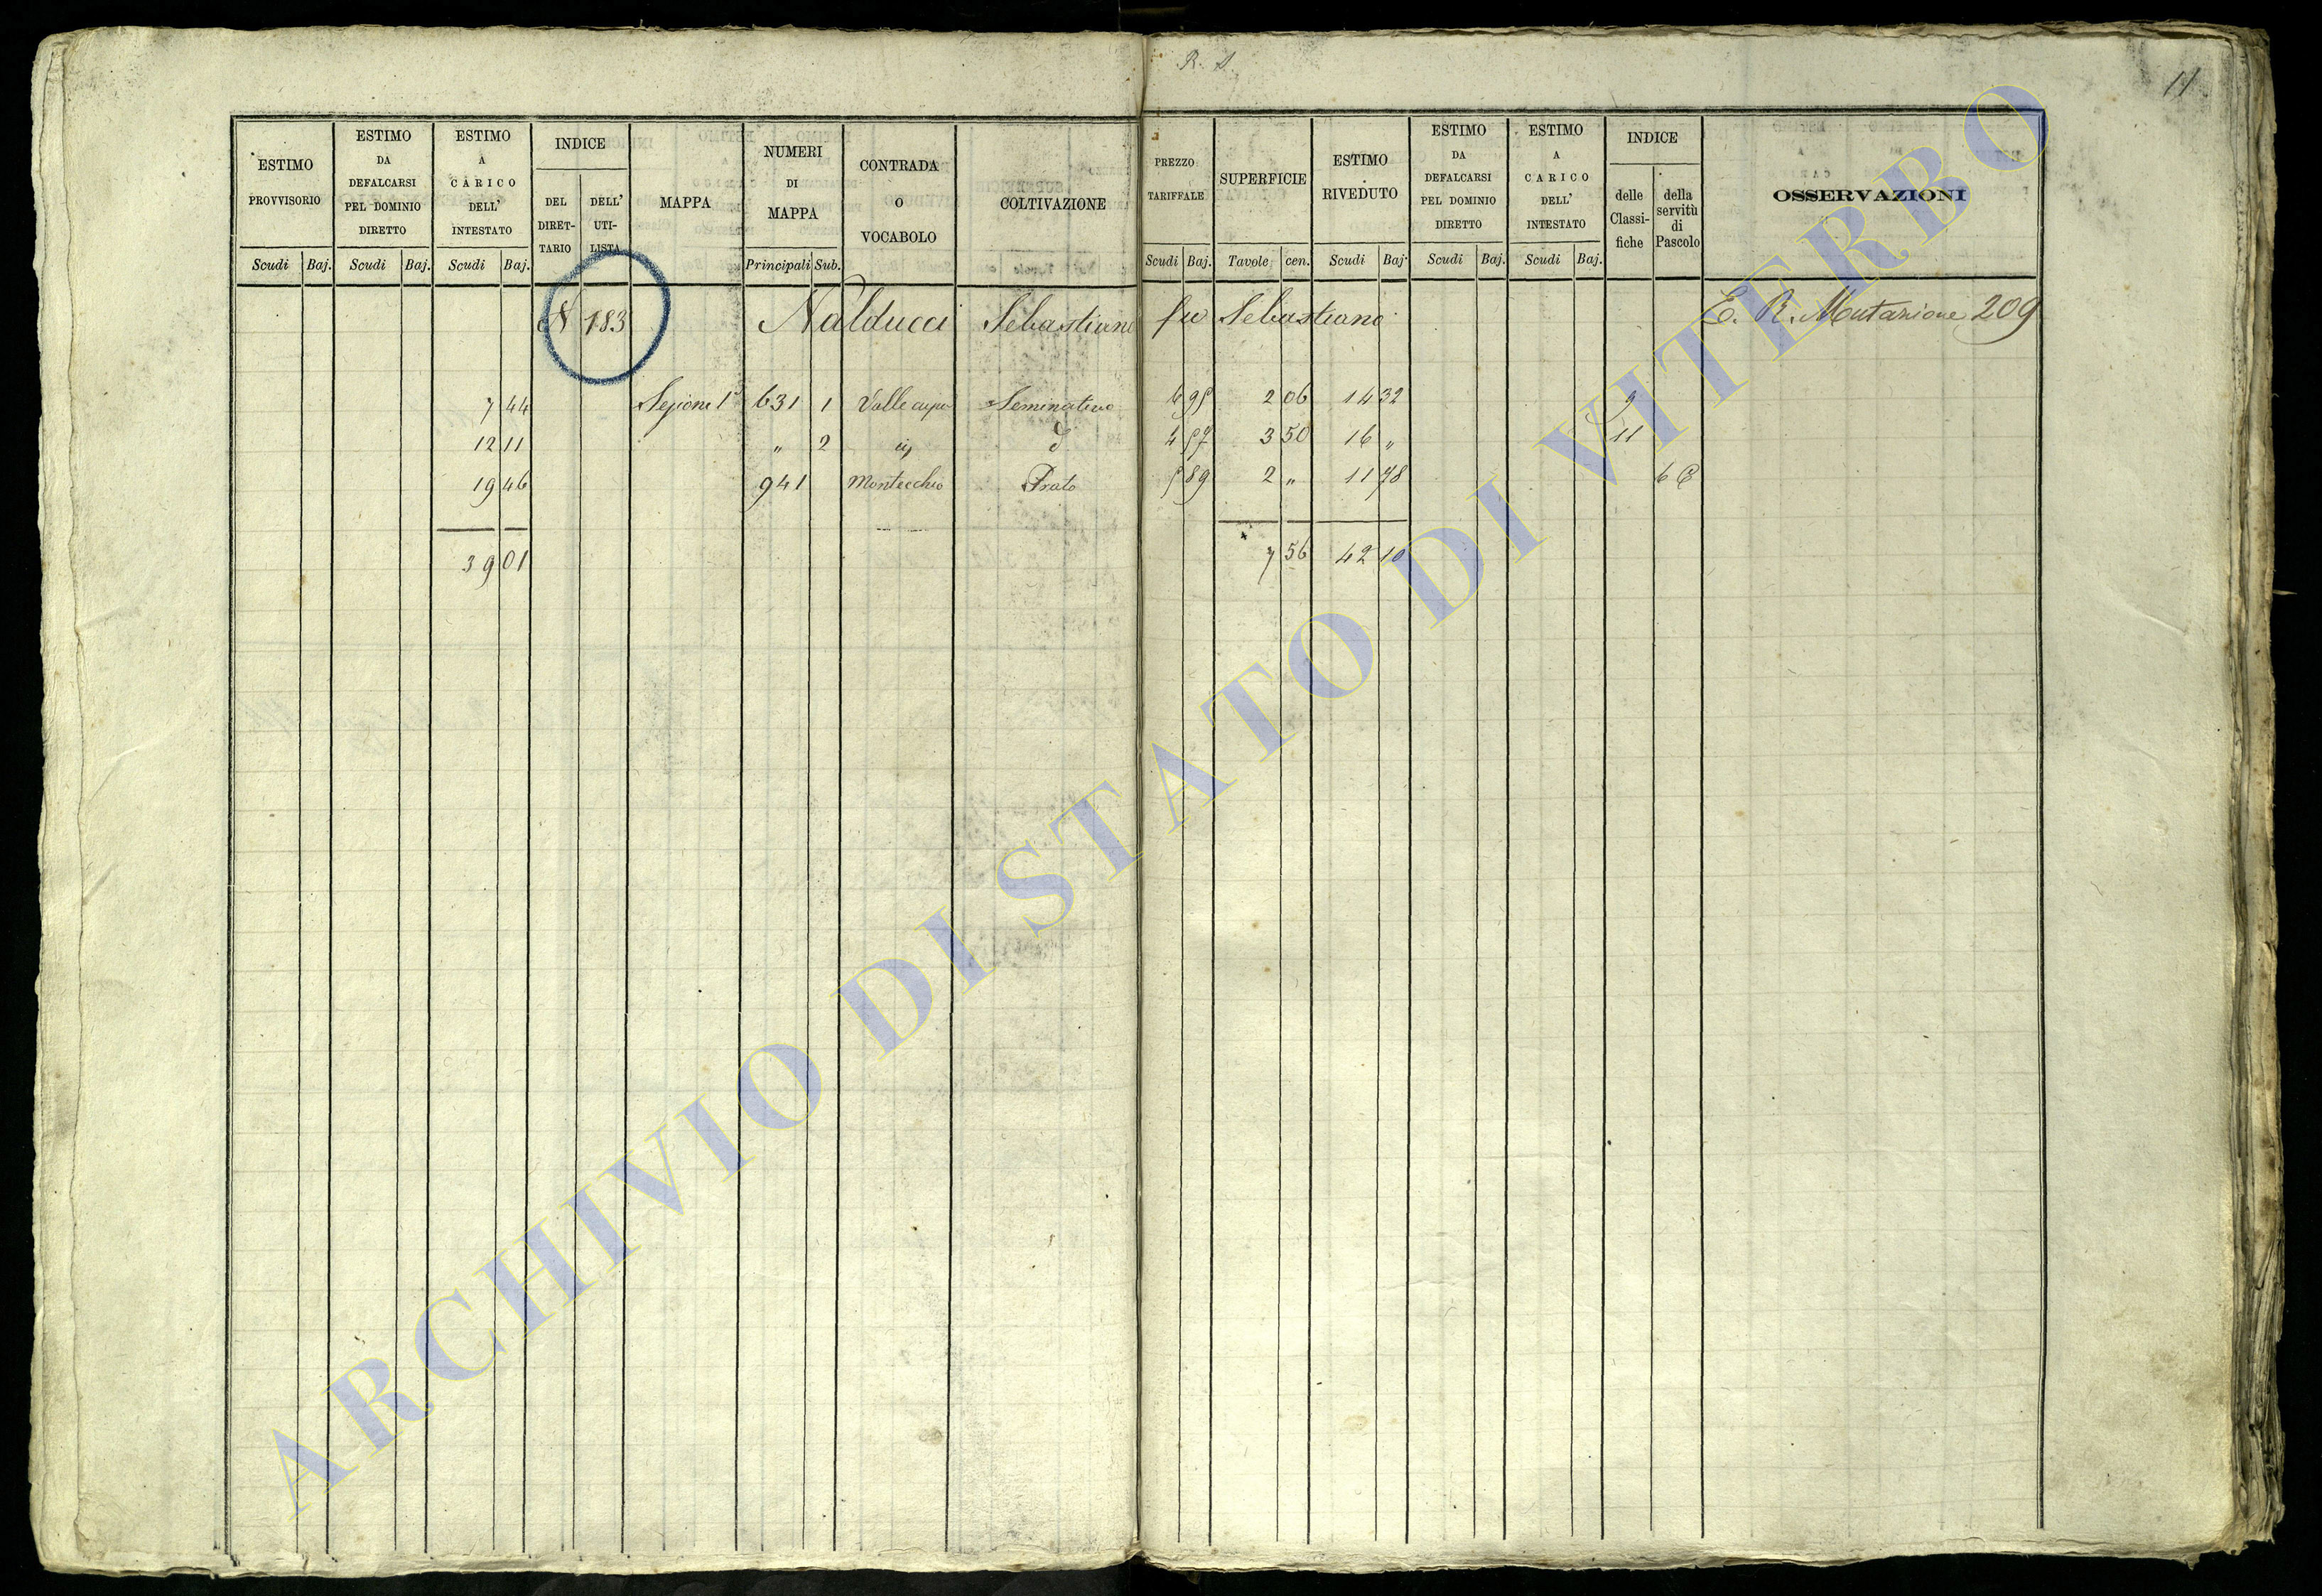 R. S.
11
ESTIMO PROVVISORIO
ESTIMO DA DEFALCARSI PEL DOMINIO DIRETTO
ESTIMO A CARICO DELL' INTESTATO
INDICE
DEL DIRET-TARIO
DELL' UTI-LISTA
MAPPA
NUMERI DI MAPPA
CONTRADA O VOCABOLO
COLTIVAZIONE
PREZZO TARIFFALE
SUPERFICIE
ESTIMO RIVEDUTO
ESTIMO DA DEFALCARSI PEL DOMINIO DIRETTO
ESTIMO A CARICO DELL' INTESTATO
INDICE
delle Classi-fiche
della servitù di Pascolo
OSSERVAZIONI
Scudi Baj. Scudi Baj. Scudi Baj. Principali Sub. Scudi Baj. Tavole cen. Scudi Baj. Scudi Baj. Scudi Baj.
N 183 Nalducci Sebastiano fu Sebastiano E. R. Mutazione 209
7 44 Sezione 1a 631 1 Valle cupa Seminativo 6 95 2 06 14 32 9
12 11 " 2 4 57 3 50 16 " 11
19 46 941 Montecchio Prato 5 89 2 " 11 78 6
39 01 7 56 42 10
ARCHIVIO DI STATO DI VITERBO